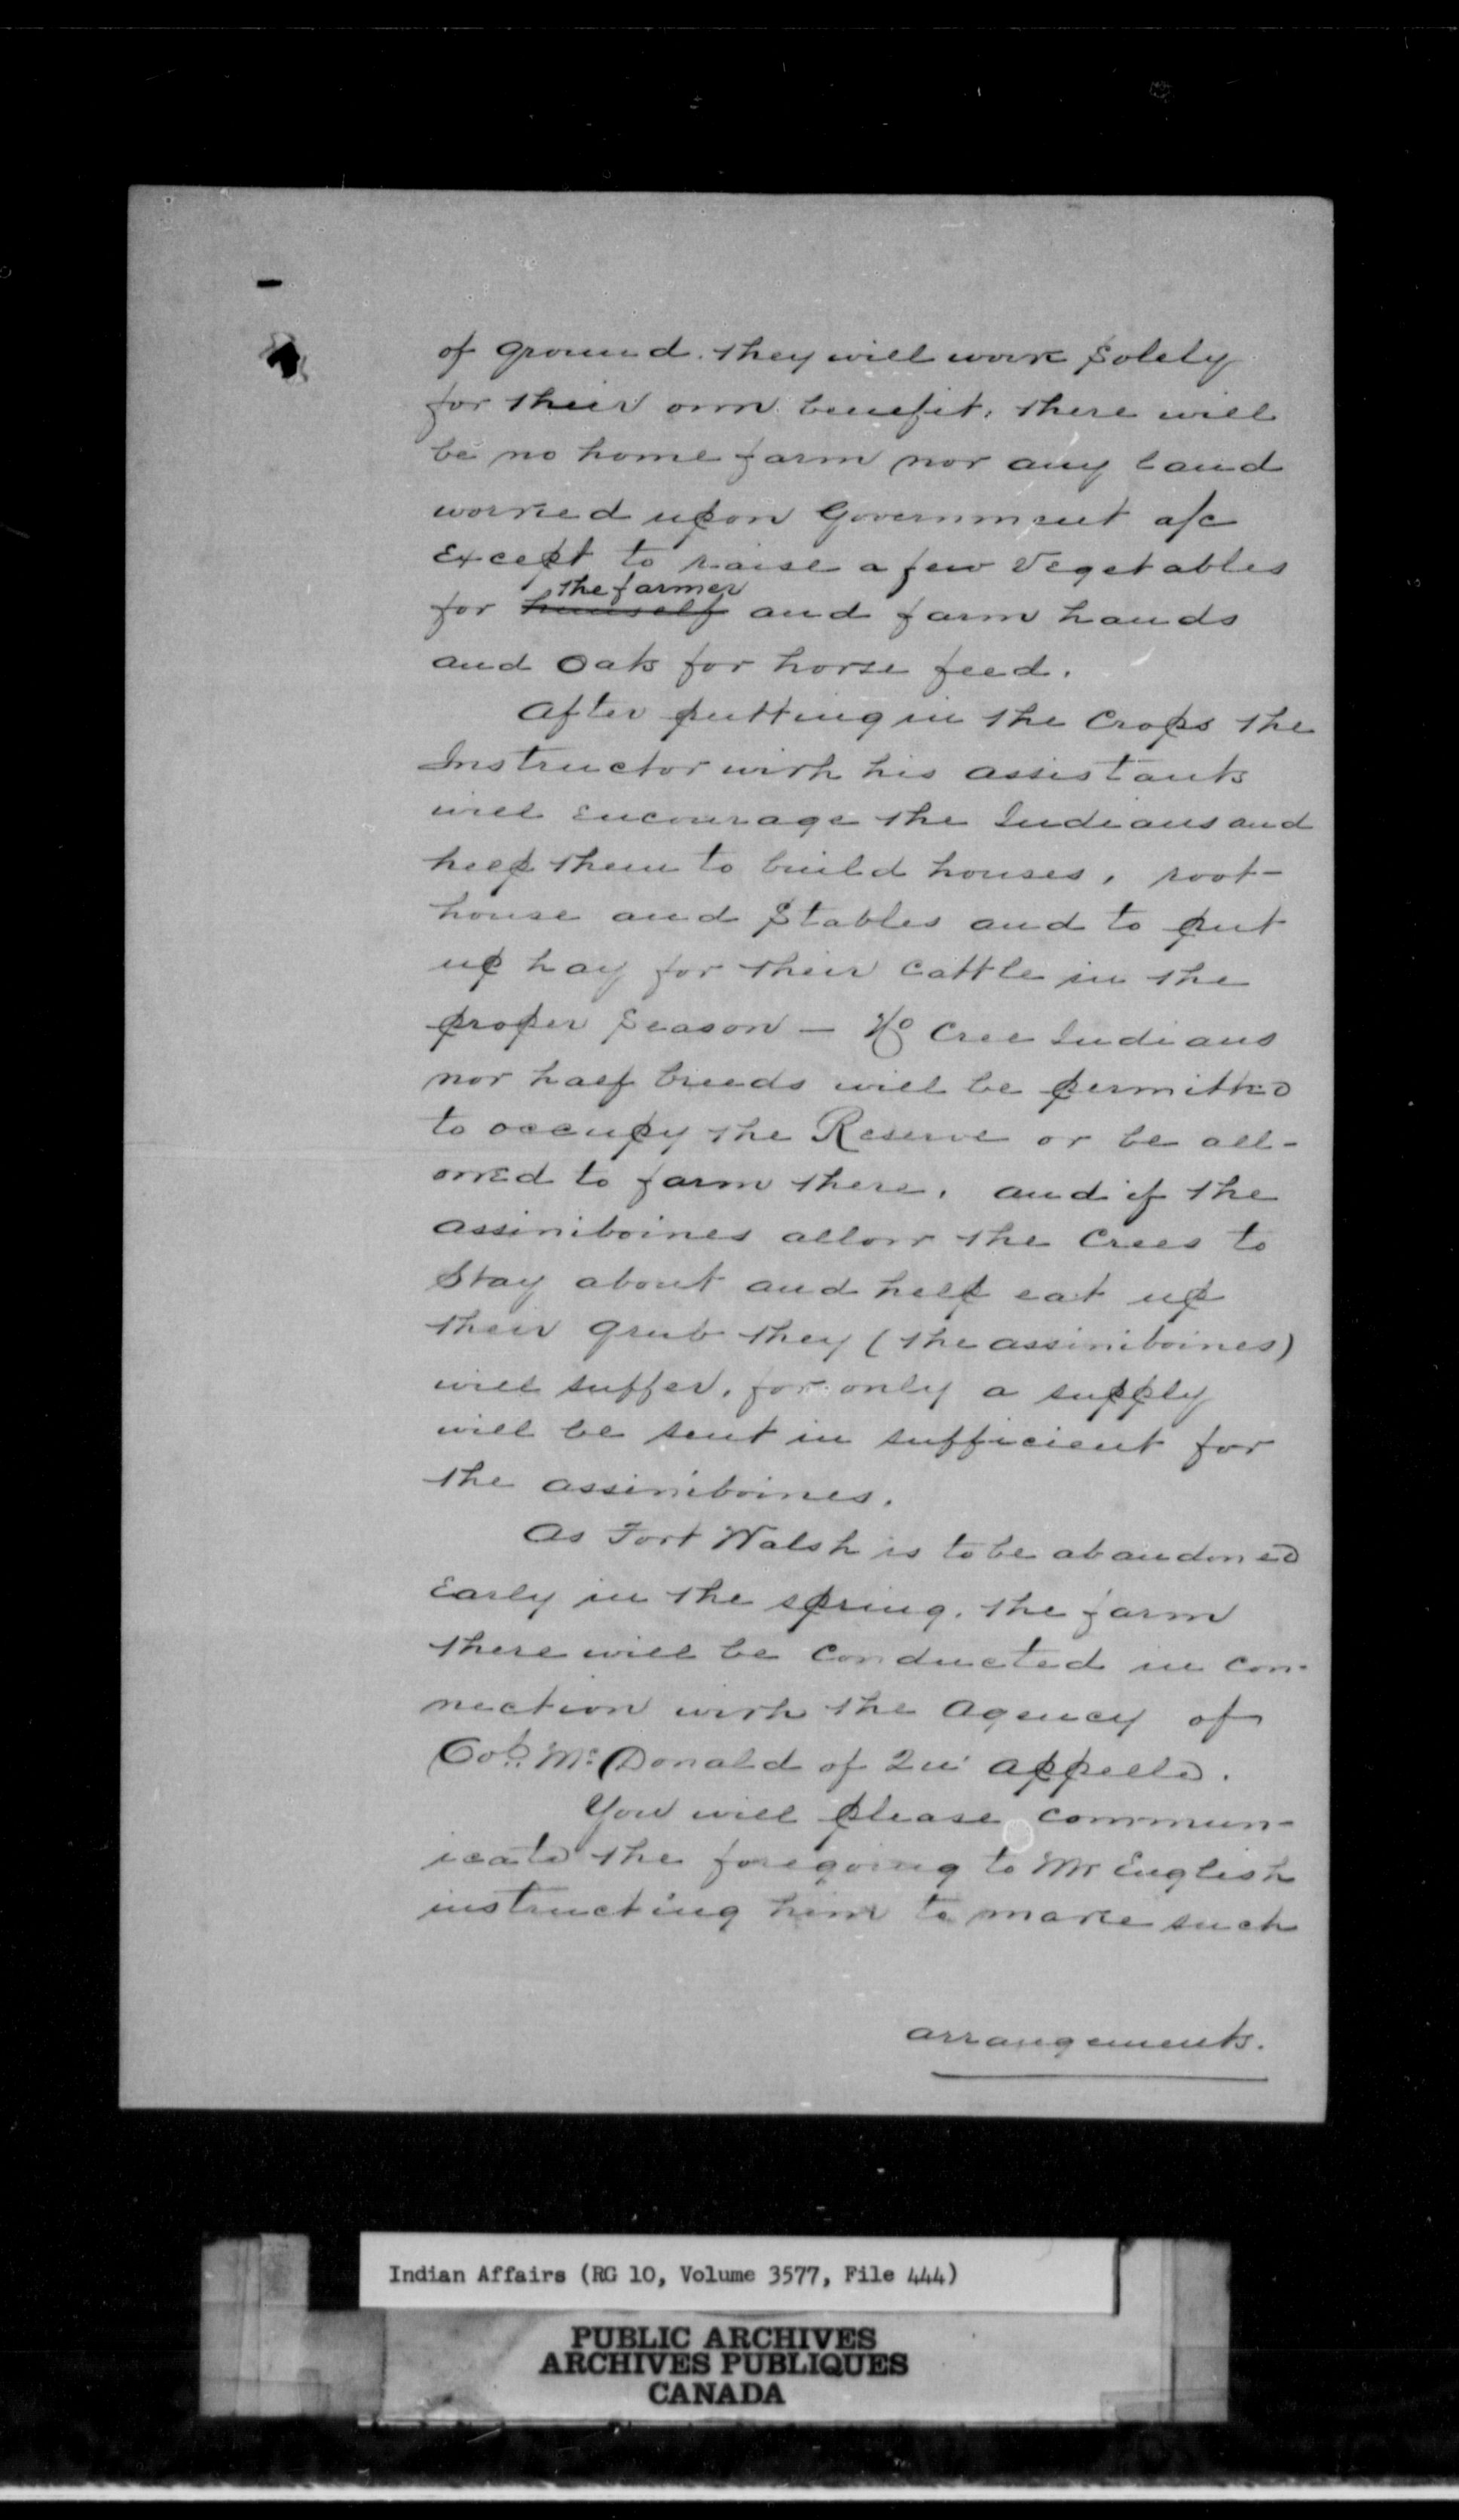 of ground. they will work solely
for their own benefit. there will
be no home farm nor any land
worked upon Government a/c
Except to raise a few Vegetables
the farmer
for himself and farm hands
and Oats for horse feed.
After putting in the Crops the
Instructor with his assistants
will Encourage the Indians and
help them to build houses, root-
house and Stables and to put
up hay for their Cattle in the
proper Season — No Cree Indians
nor half breeds will be permitted
to occupy the Reserve or be all-
owed to farm there. and if the
assiniboines allow the Crees to
Stay about and help eat up
their grub they (the assiniboines)
will suffer. for only a supply
will be sent in sufficient for
the assiniboines.
As Fort Walsh is to be abandoned
Early in the spring. the farm
there will be Conducted in con-
nection with the Agency of
Col. McDonald of Qu' appelle.
You will please commun-
icate the foregoing to Mr English
instructing him to make such
arrangements.
Indian Affairs (RG 10, Volume 3577, File 444)
PUBLIC ARCHIVES
ARCHIVES PUBLIQUES
CANADA